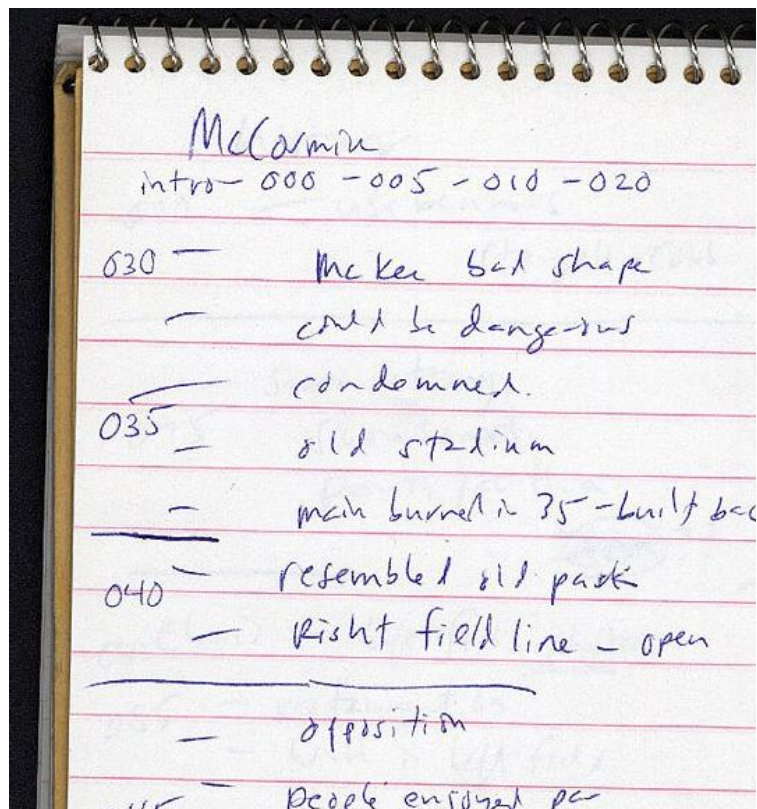 McCormick
intro - 000 - 005 - 010 - 020
030 — McKee bad shape
— could be dangerous
— condemned.
035 — old stadium
— main burned in 35 - built bac
040 — resembled old park
— Right field line - open
— opposition
— people enjoyed